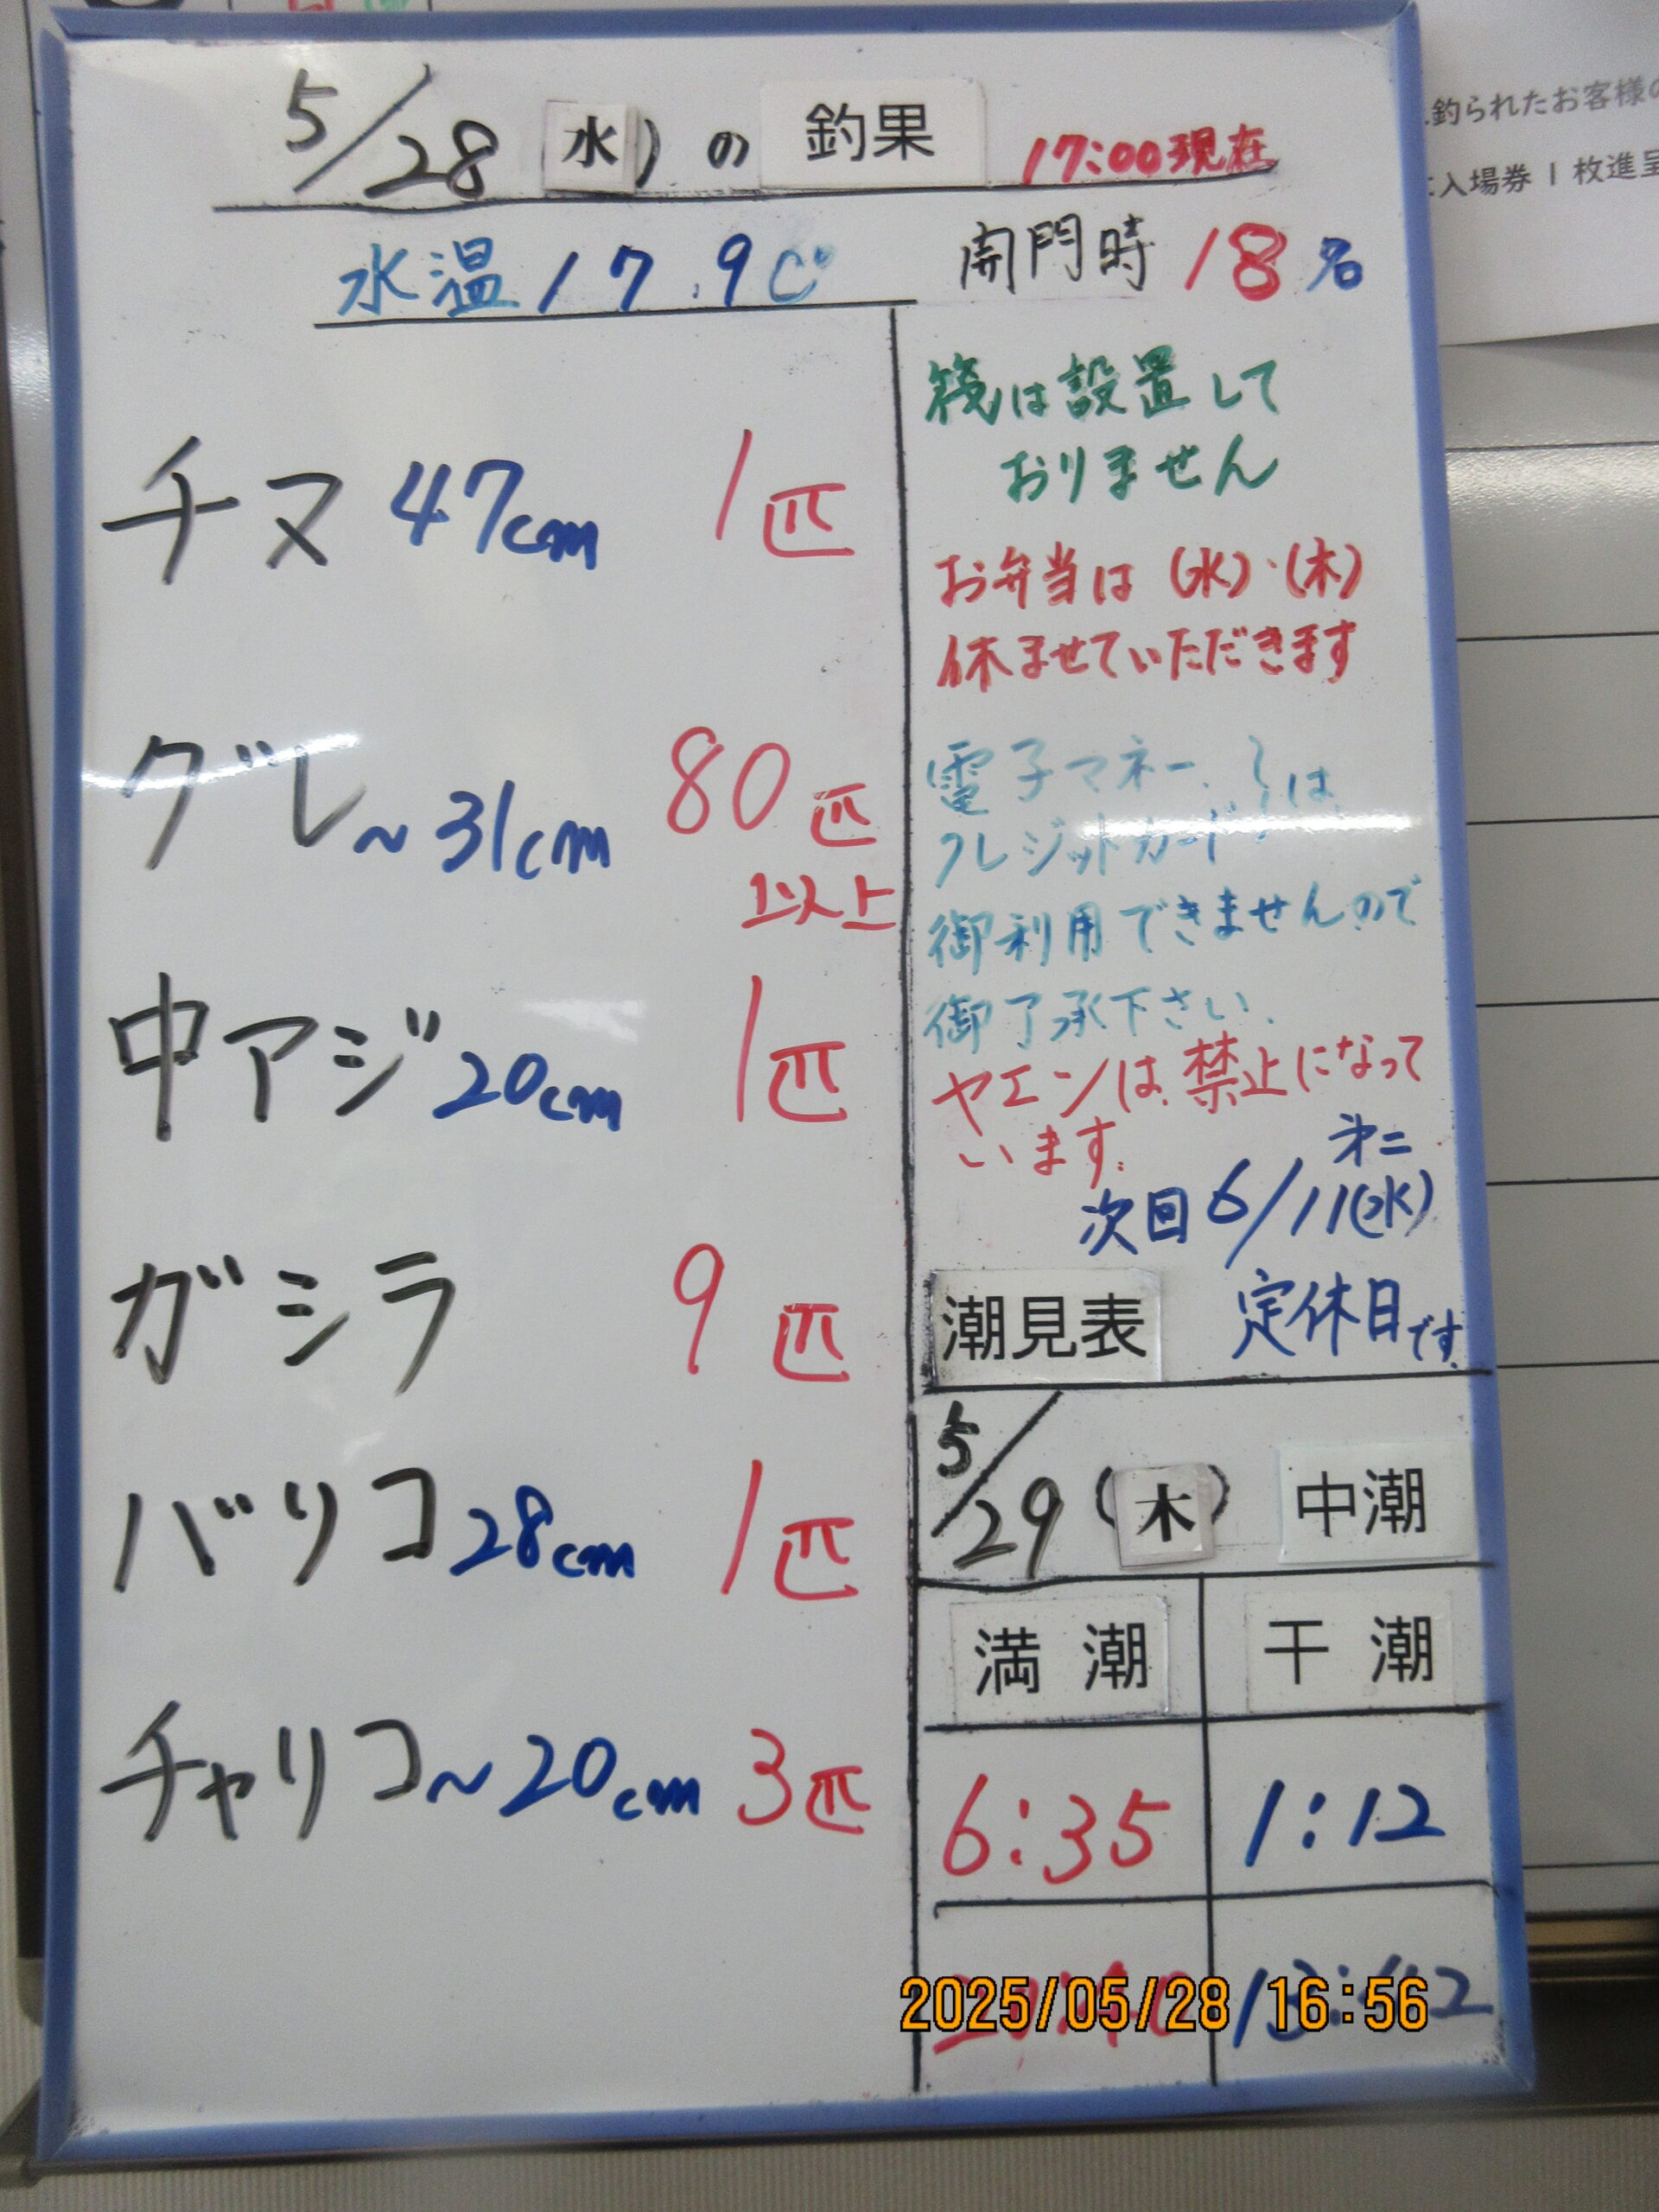 5/28（水）の 釣果 17:00現在
水温 17.9C° 開門時 18名
チヌ 47cm 1匹
グレ～31cm 80匹
以上
中アジ 20cm 1匹
ガシラ 9匹
バリコ 28cm 1匹
チャリコ～20cm 3匹
筏は設置して
おりません
お弁当は(水)・(木)
休ませていただきます
電子マネー、
クレジットカード は
御利用できませんので
御了承下さい、
ヤエンは禁止になって
います。
才二
次回 6/11(水)
定休日です。
潮見表
5/29（木）中潮
満潮 干潮
6:35 1:12
13:42
2025/05/28 16:56
釣られたお客様の
入場券1枚進呈